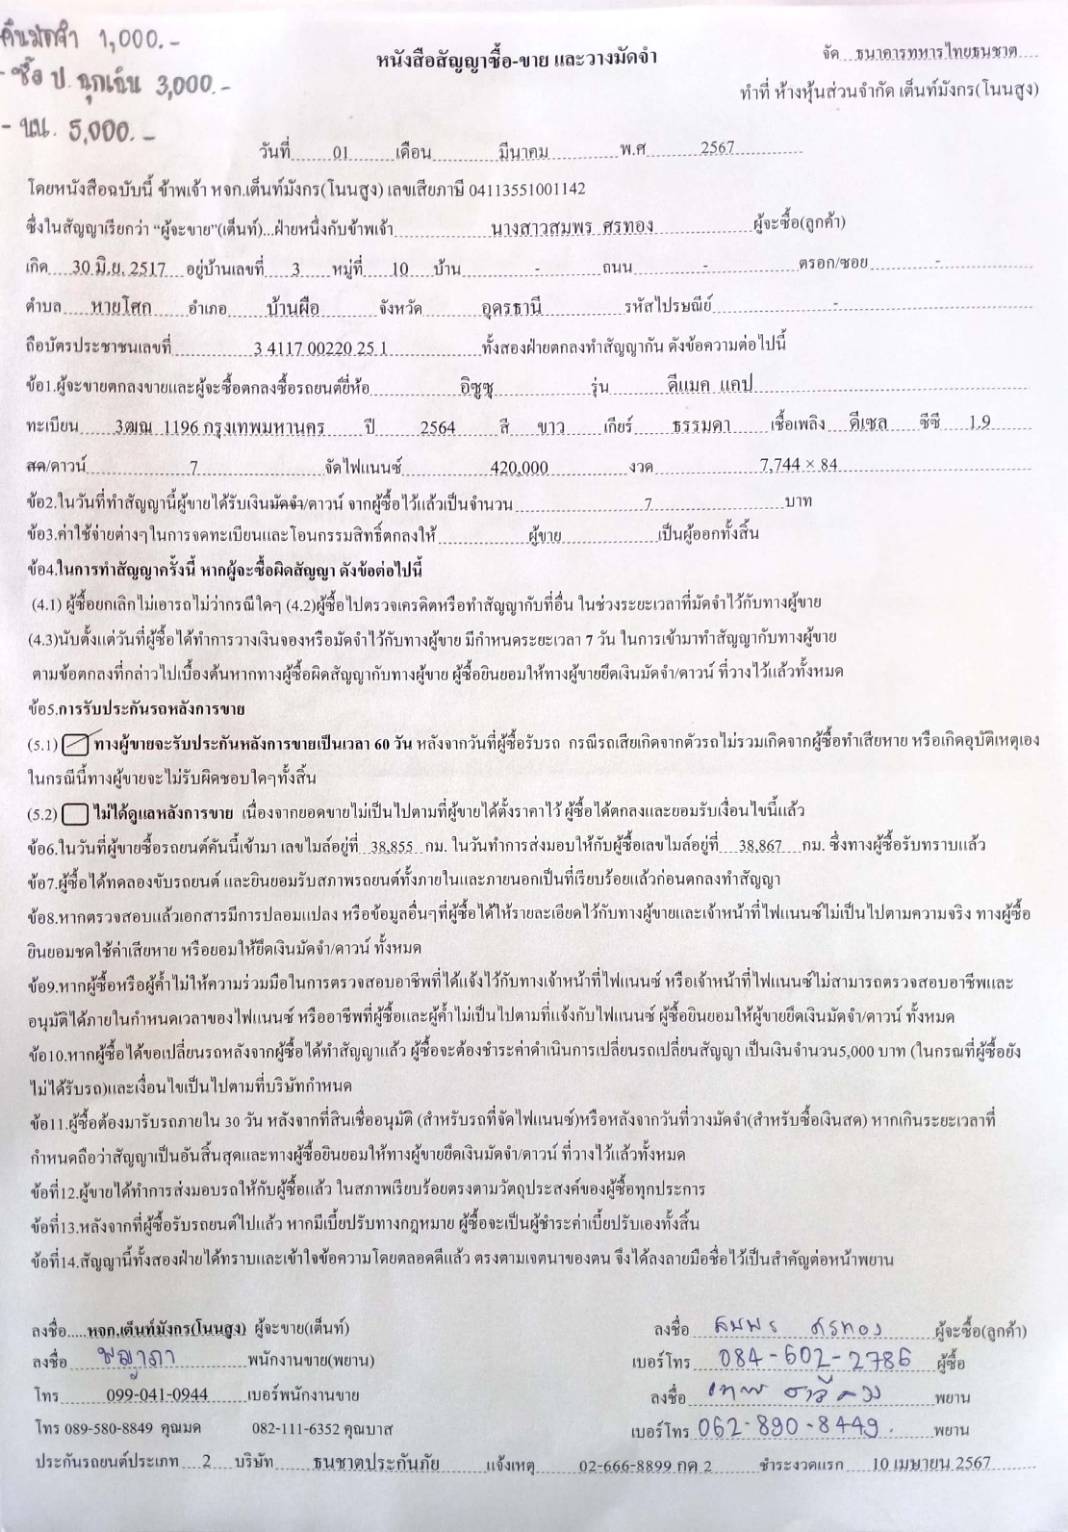 คืนมัดจำ 1,000.-
- ซื้อ ป. ฉุกเฉิน 3,000.-
- นน. 5,000.-
หนังสือสัญญาซื้อ-ขาย และวางมัดจำ
จัด ธนาคารทหารไทยธนชาต
ทำที่ ห้างหุ้นส่วนจำกัด เต็นท์มังกร(โนนสูง)
วันที่ 01 เดือน มีนาคม พ.ศ 2567
โดยหนังสือฉบับนี้ ข้าพเจ้า หจก.เต็นท์มังกร(โนนสูง) เลขเสียภาษี 04113551001142
ซึ่งในสัญญาเรียกว่า “ผู้จะขาย”(เต็นท์)...ฝ่ายหนึ่งกับข้าพเจ้า นางสาวสมพร ศรทอง ผู้จะซื้อ(ลูกค้า)
เกิด 30 มิ.ย. 2517 อยู่บ้านเลขที่ 3 หมู่ที่ 10 บ้าน - ถนน - ตรอก/ซอย -
ตำบล หายโศก อำเภอ บ้านผือ จังหวัด อุดรธานี รหัสไปรษณีย์ -
ถือบัตรประชาชนเลขที่ 3 4117 00220 25 1 ทั้งสองฝ่ายตกลงทำสัญญากัน ดังข้อความต่อไปนี้
ข้อ1.ผู้จะขายตกลงขายและผู้จะซื้อตกลงซื้อรถยนต์ยี่ห้อ อีซูซุ รุ่น ดีแมค แคป
ทะเบียน 3ฒณ 1196 กรุงเทพมหานคร ปี 2564 สี ขาว เกียร์ ธรรมดา เชื้อเพลิง ดีเซล ซีซี 1.9
สด/ดาวน์ 7 จัดไฟแนนซ์ 420,000 งวด 7,744 × 84
ข้อ2.ในวันที่ทำสัญญานี้ผู้ขายได้รับเงินมัดจำ/ดาวน์ จากผู้ซื้อไว้แล้วเป็นจำนวน 7 บาท
ข้อ3.ค่าใช้จ่ายต่างๆในการจดทะเบียนและโอนกรรมสิทธิ์ตกลงให้ ผู้ขาย เป็นผู้ออกทั้งสิ้น
ข้อ4.ในการทำสัญญาครั้งนี้ หากผู้จะซื้อผิดสัญญา ดังข้อต่อไปนี้
(4.1) ผู้ซื้อยกเลิกไม่เอารถไม่ว่ากรณีใดๆ (4.2)ผู้ซื้อไปตรวจเครดิตหรือทำสัญญากับที่อื่น ในช่วงระยะเวลาที่มัดจำไว้กับทางผู้ขาย
(4.3)นับตั้งแต่วันที่ผู้ซื้อได้ทำการวางเงินจองหรือมัดจำไว้กับทางผู้ขาย มีกำหนดระยะเวลา 7 วัน ในการเข้ามาทำสัญญากับทางผู้ขาย
ตามข้อตกลงที่กล่าวไปเบื้องต้นหากทางผู้ซื้อผิดสัญญากับทางผู้ขาย ผู้ซื้อยินยอมให้ทางผู้ขายยึดเงินมัดจำ/ดาวน์ ที่วางไว้แล้วทั้งหมด
ข้อ5.การรับประกันรถหลังการขาย
(5.1) ทางผู้ขายจะรับประกันหลังการขายเป็นเวลา 60 วัน หลังจากวันที่ผู้ซื้อรับรถ กรณีรถเสียเกิดจากตัวรถไม่รวมเกิดจากผู้ซื้อทำเสียหาย หรือเกิดอุบัติเหตุเอง
ในกรณีนี้ทางผู้ขายจะไม่รับผิดชอบใดๆทั้งสิ้น
(5.2) ไม่ได้ดูแลหลังการขาย เนื่องจากยอดขายไม่เป็นไปตามที่ผู้ขายได้ตั้งราคาไว้ ผู้ซื้อได้ตกลงและยอมรับเงื่อนไขนี้แล้ว
ข้อ6.ในวันที่ผู้ขายซื้อรถยนต์คันนี้เข้ามา เลขไมล์อยู่ที่ 38,855 กม. ในวันทำการส่งมอบให้กับผู้ซื้อเลขไมล์อยู่ที่ 38,867 กม. ซึ่งทางผู้ซื้อรับทราบแล้ว
ข้อ7.ผู้ซื้อได้ทดลองขับรถยนต์ และยินยอมรับสภาพรถยนต์ทั้งภายในและภายนอกเป็นที่เรียบร้อยแล้วก่อนตกลงทำสัญญา
ข้อ8.หากตรวจสอบแล้วเอกสารมีการปลอมแปลง หรือข้อมูลอื่นๆที่ผู้ซื้อได้ให้รายละเอียดไว้กับทางผู้ขายและเจ้าหน้าที่ไฟแนนซ์ไม่เป็นไปตามความจริง ทางผู้ซื้อ
ยินยอมชดใช้ค่าเสียหาย หรือยอมให้ยึดเงินมัดจำ/ดาวน์ ทั้งหมด
ข้อ9.หากผู้ซื้อหรือผู้ค้ำไม่ให้ความร่วมมือในการตรวจสอบอาชีพที่ได้แจ้งไว้กับทางเจ้าหน้าที่ไฟแนนซ์ หรือเจ้าหน้าที่ไฟแนนซ์ไม่สามารถตรวจสอบอาชีพและ
อนุมัติได้ภายในกำหนดเวลาของไฟแนนซ์ หรืออาชีพที่ผู้ซื้อและผู้ค้ำไม่เป็นไปตามที่แจ้งกับไฟแนนซ์ ผู้ซื้อยินยอมให้ผู้ขายยึดเงินมัดจำ/ดาวน์ ทั้งหมด
ข้อ10.หากผู้ซื้อได้ขอเปลี่ยนรถหลังจากผู้ซื้อได้ทำสัญญาแล้ว ผู้ซื้อจะต้องชำระค่าดำเนินการเปลี่ยนรถเปลี่ยนสัญญา เป็นเงินจำนวน5,000 บาท (ในกรณที่ผู้ซื้อยัง
ไม่ได้รับรถ)และเงื่อนไขเป็นไปตามที่บริษัทกำหนด
ข้อ11.ผู้ซื้อต้องมารับรถภายใน 30 วัน หลังจากที่สินเชื่ออนุมัติ (สำหรับรถที่จัดไฟแนนซ์)หรือหลังจากวันที่วางมัดจำ(สำหรับซื้อเงินสด) หากเกินระยะเวลาที่
กำหนดถือว่าสัญญาเป็นอันสิ้นสุดและทางผู้ซื้อยินยอมให้ทางผู้ขายยึดเงินมัดจำ/ดาวน์ ที่วางไว้แล้วทั้งหมด
ข้อที่12.ผู้ขายได้ทำการส่งมอบรถให้กับผู้ซื้อแล้ว ในสภาพเรียบร้อยตรงตามวัตถุประสงค์ของผู้ซื้อทุกประการ
ข้อที่13.หลังจากที่ผู้ซื้อรับรถยนต์ไปแล้ว หากมีเบี้ยปรับทางกฎหมาย ผู้ซื้อจะเป็นผู้ชำระค่าเบี้ยปรับเองทั้งสิ้น
ข้อที่14.สัญญานี้ทั้งสองฝ่ายได้ทราบและเข้าใจข้อความโดยตลอดดีแล้ว ตรงตามเจตนาของตน จึงได้ลงลายมือชื่อไว้เป็นสำคัญต่อหน้าพยาน
ลงชื่อ.....หจก.เต็นท์มังกร(โนนสูง) ผู้จะขาย(เต็นท์) ลงชื่อ สมพร ศรทอง ผู้จะซื้อ(ลูกค้า)
ลงชื่อ พญาภา พนักงานขาย(พยาน) เบอร์โทร 084-602-2786 ผู้ซื้อ
โทร 099-041-0944 เบอร์พนักงานขาย ลงชื่อ พยาน
โทร 089-580-8849 คุณมด 082-111-6352 คุณบาส เบอร์โทร 062-890-8449. พยาน
ประกันรถยนต์ประเภท 2 บริษัท ธนชาตประกันภัย แจ้งเหตุ 02-666-8899 กด 2 ชำระงวดแรก 10 เมษายน 2567